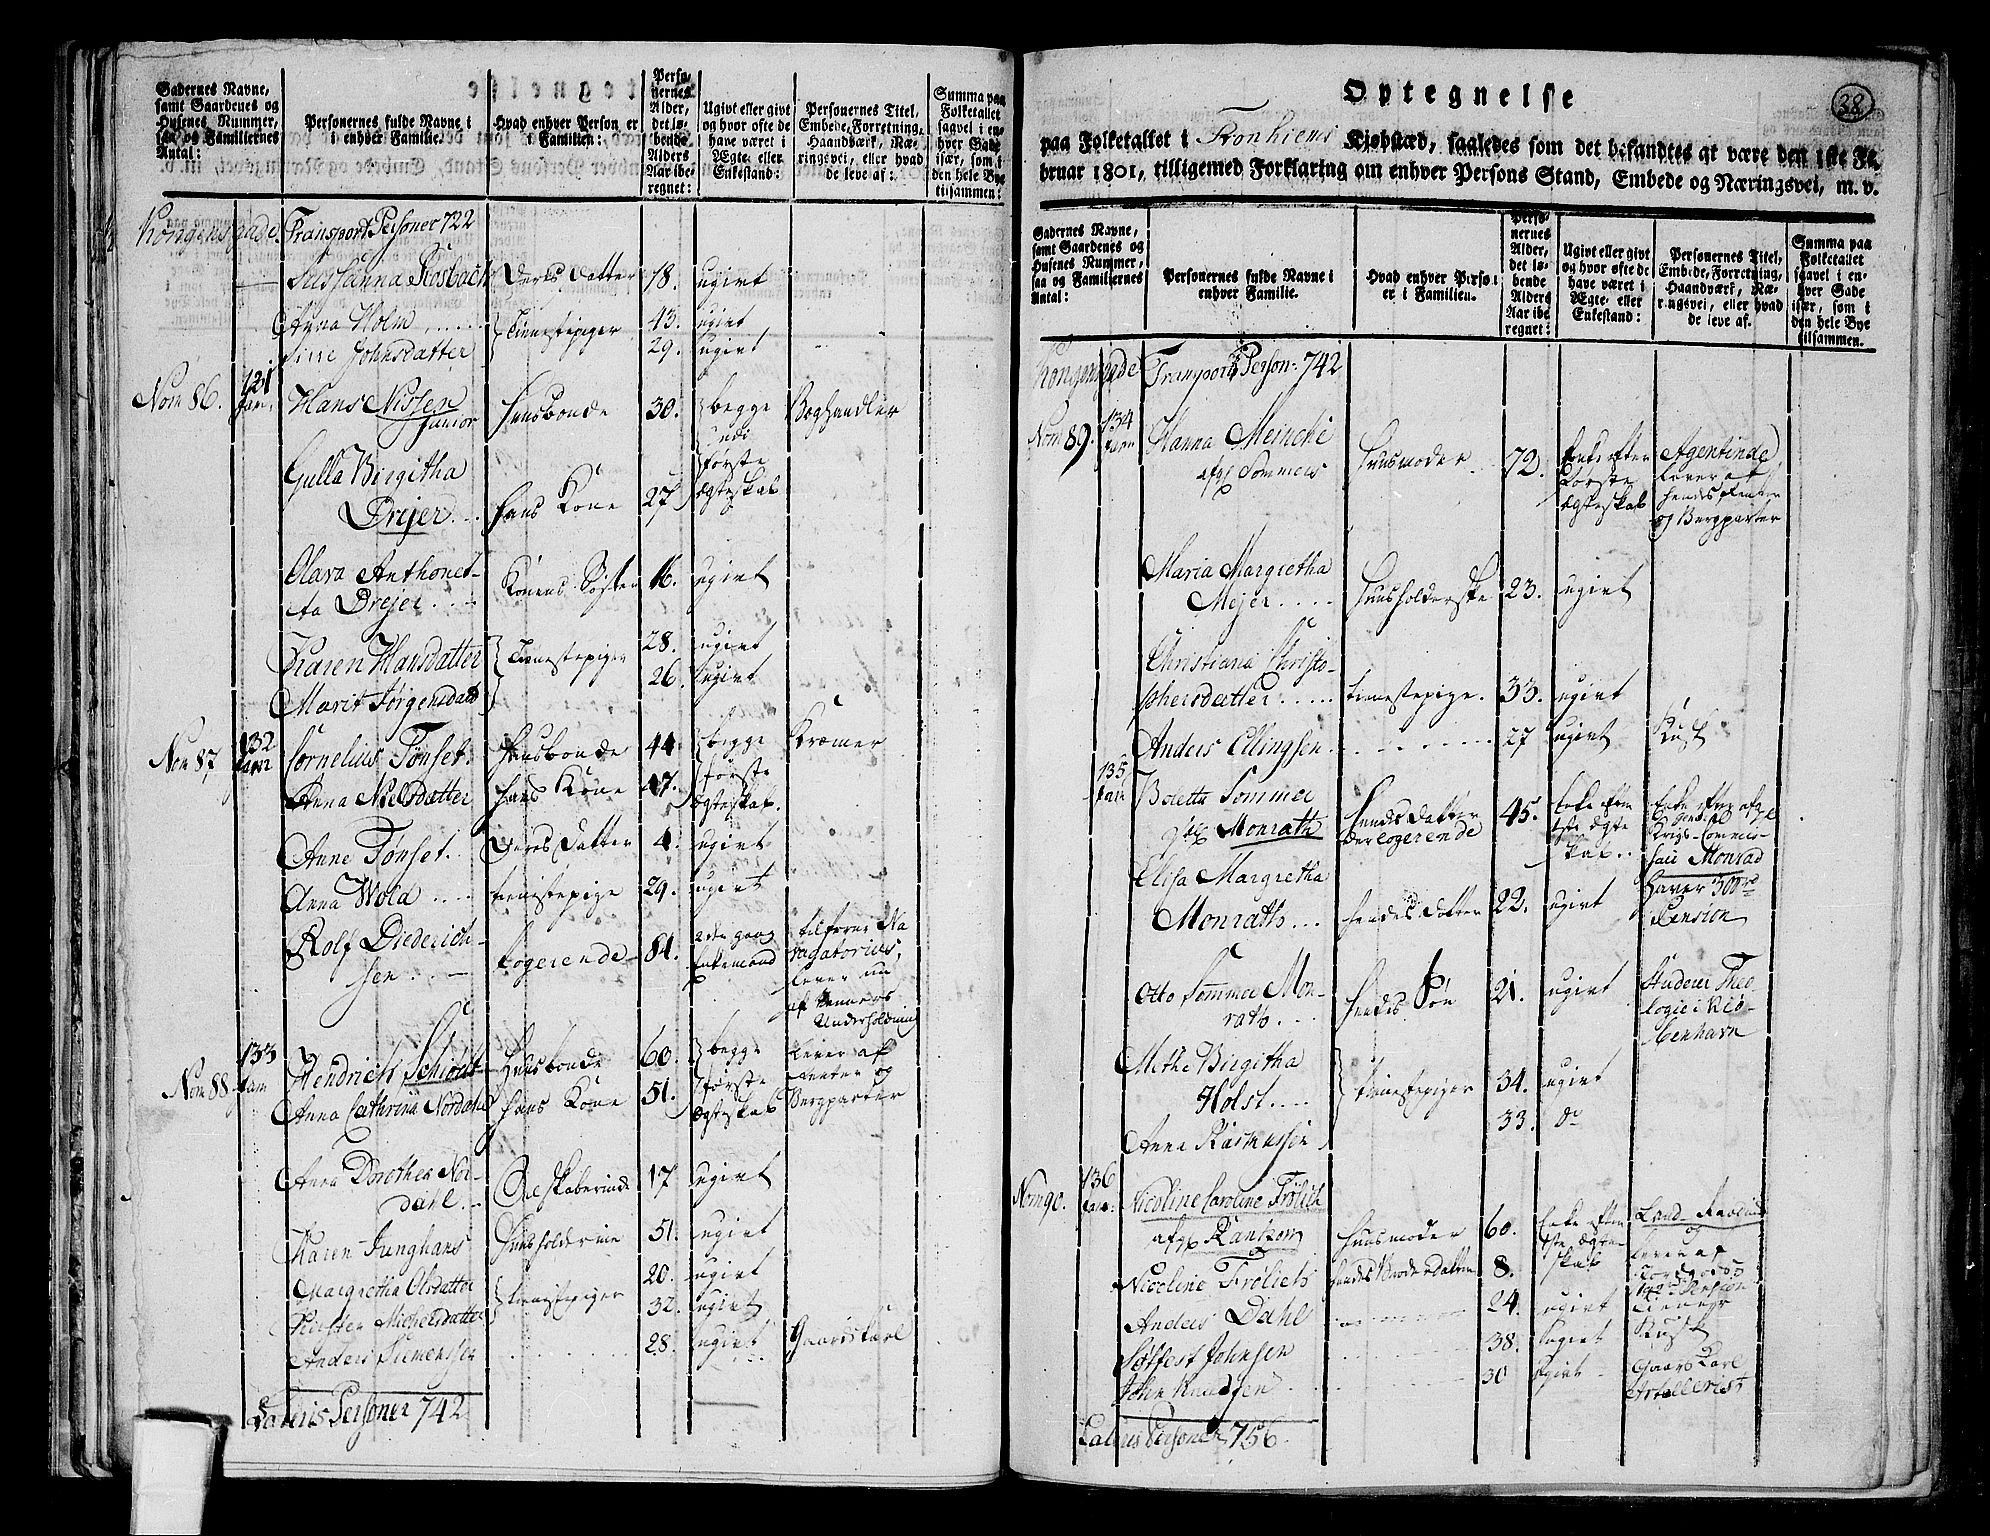 Gadernes Navne,
samt Gaardenes og
Husenes Nummer,
saa og Familiernes
Antal:
Personernes fulde Navne i
i enhver Familie.
Hvad enhver Person er
i Familien:
Perso-
nernes
Alder,
det lø-
bende
Alders
Aar ibe-
regnet:
Ugivt eller givt
og hvor ofte de
have været i
Ægte- eller
Enkestand:
Personernes Titel,
Embede, Forretning,
Haandværk, Næ-
ringsvei, eller hvad
de leve af:
Summa paa
Folketallet
saavel i en-
hver Gade
især, som i
den hele Bye
tilsammen:
Kongens gade. Transport Personer 722
Susanna Rosbach Deres Datter 18. ugivt
Anna Holm Tienestepiger 43. ugivt
Sine Johnsdatter 29. ugivt
Nom 86. 121 Fam: Hans Nissen Junior Huusbonde 30. begge Boghandler
i
første
Gulla Birgitha
Drejer hans Kone 27 ægteskab
Clara Anthonet-
ta Drejer Konens Søster 16. ugivt
Karen Hansdatter Tienestepiger 28. ugivt
Marit Jørgensdatt 26. ugivt
Nom 87 132 Fam Cornelius Tønset. Huusbonde 44 begge Kræmer
Anna Nielsdatter hans Kone 47. første
ægteskab.
Anne Tønset. Deres Datter 4. ugivt
Anna Wold tienestepige 29. ugivt
Rolf Diederich-
sen logerende 84. Enkemand
lever nu
af Venners
Underholdning
Nom 88 133 Fam Hendrich Schiødt Huusbonde 60. begge lever af
Anna Cathrina Nordahl hans Kone 51. første Renter og
ægteskab Bergparter
Anna Dorothea Nor-
dahl. Selskaberinde 17 ugivt
Karen Junghans Huusholderine 51. ugivt
Margretha Olsdatter tienestepiger 20. ugivt
Kirsten Michelsdatter 32. ugivt
Anders Siemenssen 28. ugivt Gaardskarl
Lateris Personer 742
38
Optegnelse
paa Folketallet i Tronhiems Kiøbstæd, saaledes som det befandtes at være den 1ste Fe-
bruar 1801, tilligemed Forklaring om enhver Persons Stand, Embede og Næringsvei, m. v.
Gadernes Navne,
samt Gaardenes og
Husenes Nummer,
saa og Familiernes
Antal:
Personernes fulde Navne i
enhver Familie.
Hvad enhver Perso i
er i Familien.
Perso-
nernes
Alder,
det lø-
bende
Alders
Aar ibe-
regnet:
Ugivt eller givt
og hvor ofte de
have været i
Ægte- eller
Enkestand:
Personernes Titel,
Embede, Forretning,
Haandværk, Næ-
ringsvei, eller hvad
de leve af.
Summa paa
Folketallet
saavel i en-
hver Gade
især, som i
den hele Bye
tilsammen.
Kongensgade Transport Person: 742
Nom 89. 134 Fam Hanna Meincke Huusmoder 72. Enke efter Agentinde
afg: Sommers første lever af
ægteskab hendes Renter
og Bergparter
Maria Margretha
Mejer Huusholderske 23. ugivt
Christiana Christo-
phersdatter tienestepige. 33. ugivt
Anders Ellingsen 27 ugivt Kusk
135 Fam Boletta Sommer Hendes Datter 45. Enke efter Enke efter afg:
Monrath der logerende 1ste ægte Krigs-Commis-
skab. sair Monrad
Elisa Margretha haver 300 rd
Monrath hendes Datter 22. ugivt Pension
Otto Sommer Mon-
rath hendes Søn 21. ugivt Student Theo-
logie i Kiø-
benhavn
Mette Birgitha
Holst tienestepiger 34. ugivt
Anna Rasmussen 33. do
Nom 90. 136 Fam: Nicoline Caroline Frölich
afg: Rantzow Huusmoder 60. Enke efter Land-Raadinde
1ste ægte- lever af
skab Jordgods
Nicoline Frölich hendes Broderdatter 8. Pension
Anders Dahl 24. ugivt Tiener
Solfest Johnsen 38. ugivt Kusk
John Knudsen 30 ugivt Gaars Karl
Artellerist
Lateris Personer 756